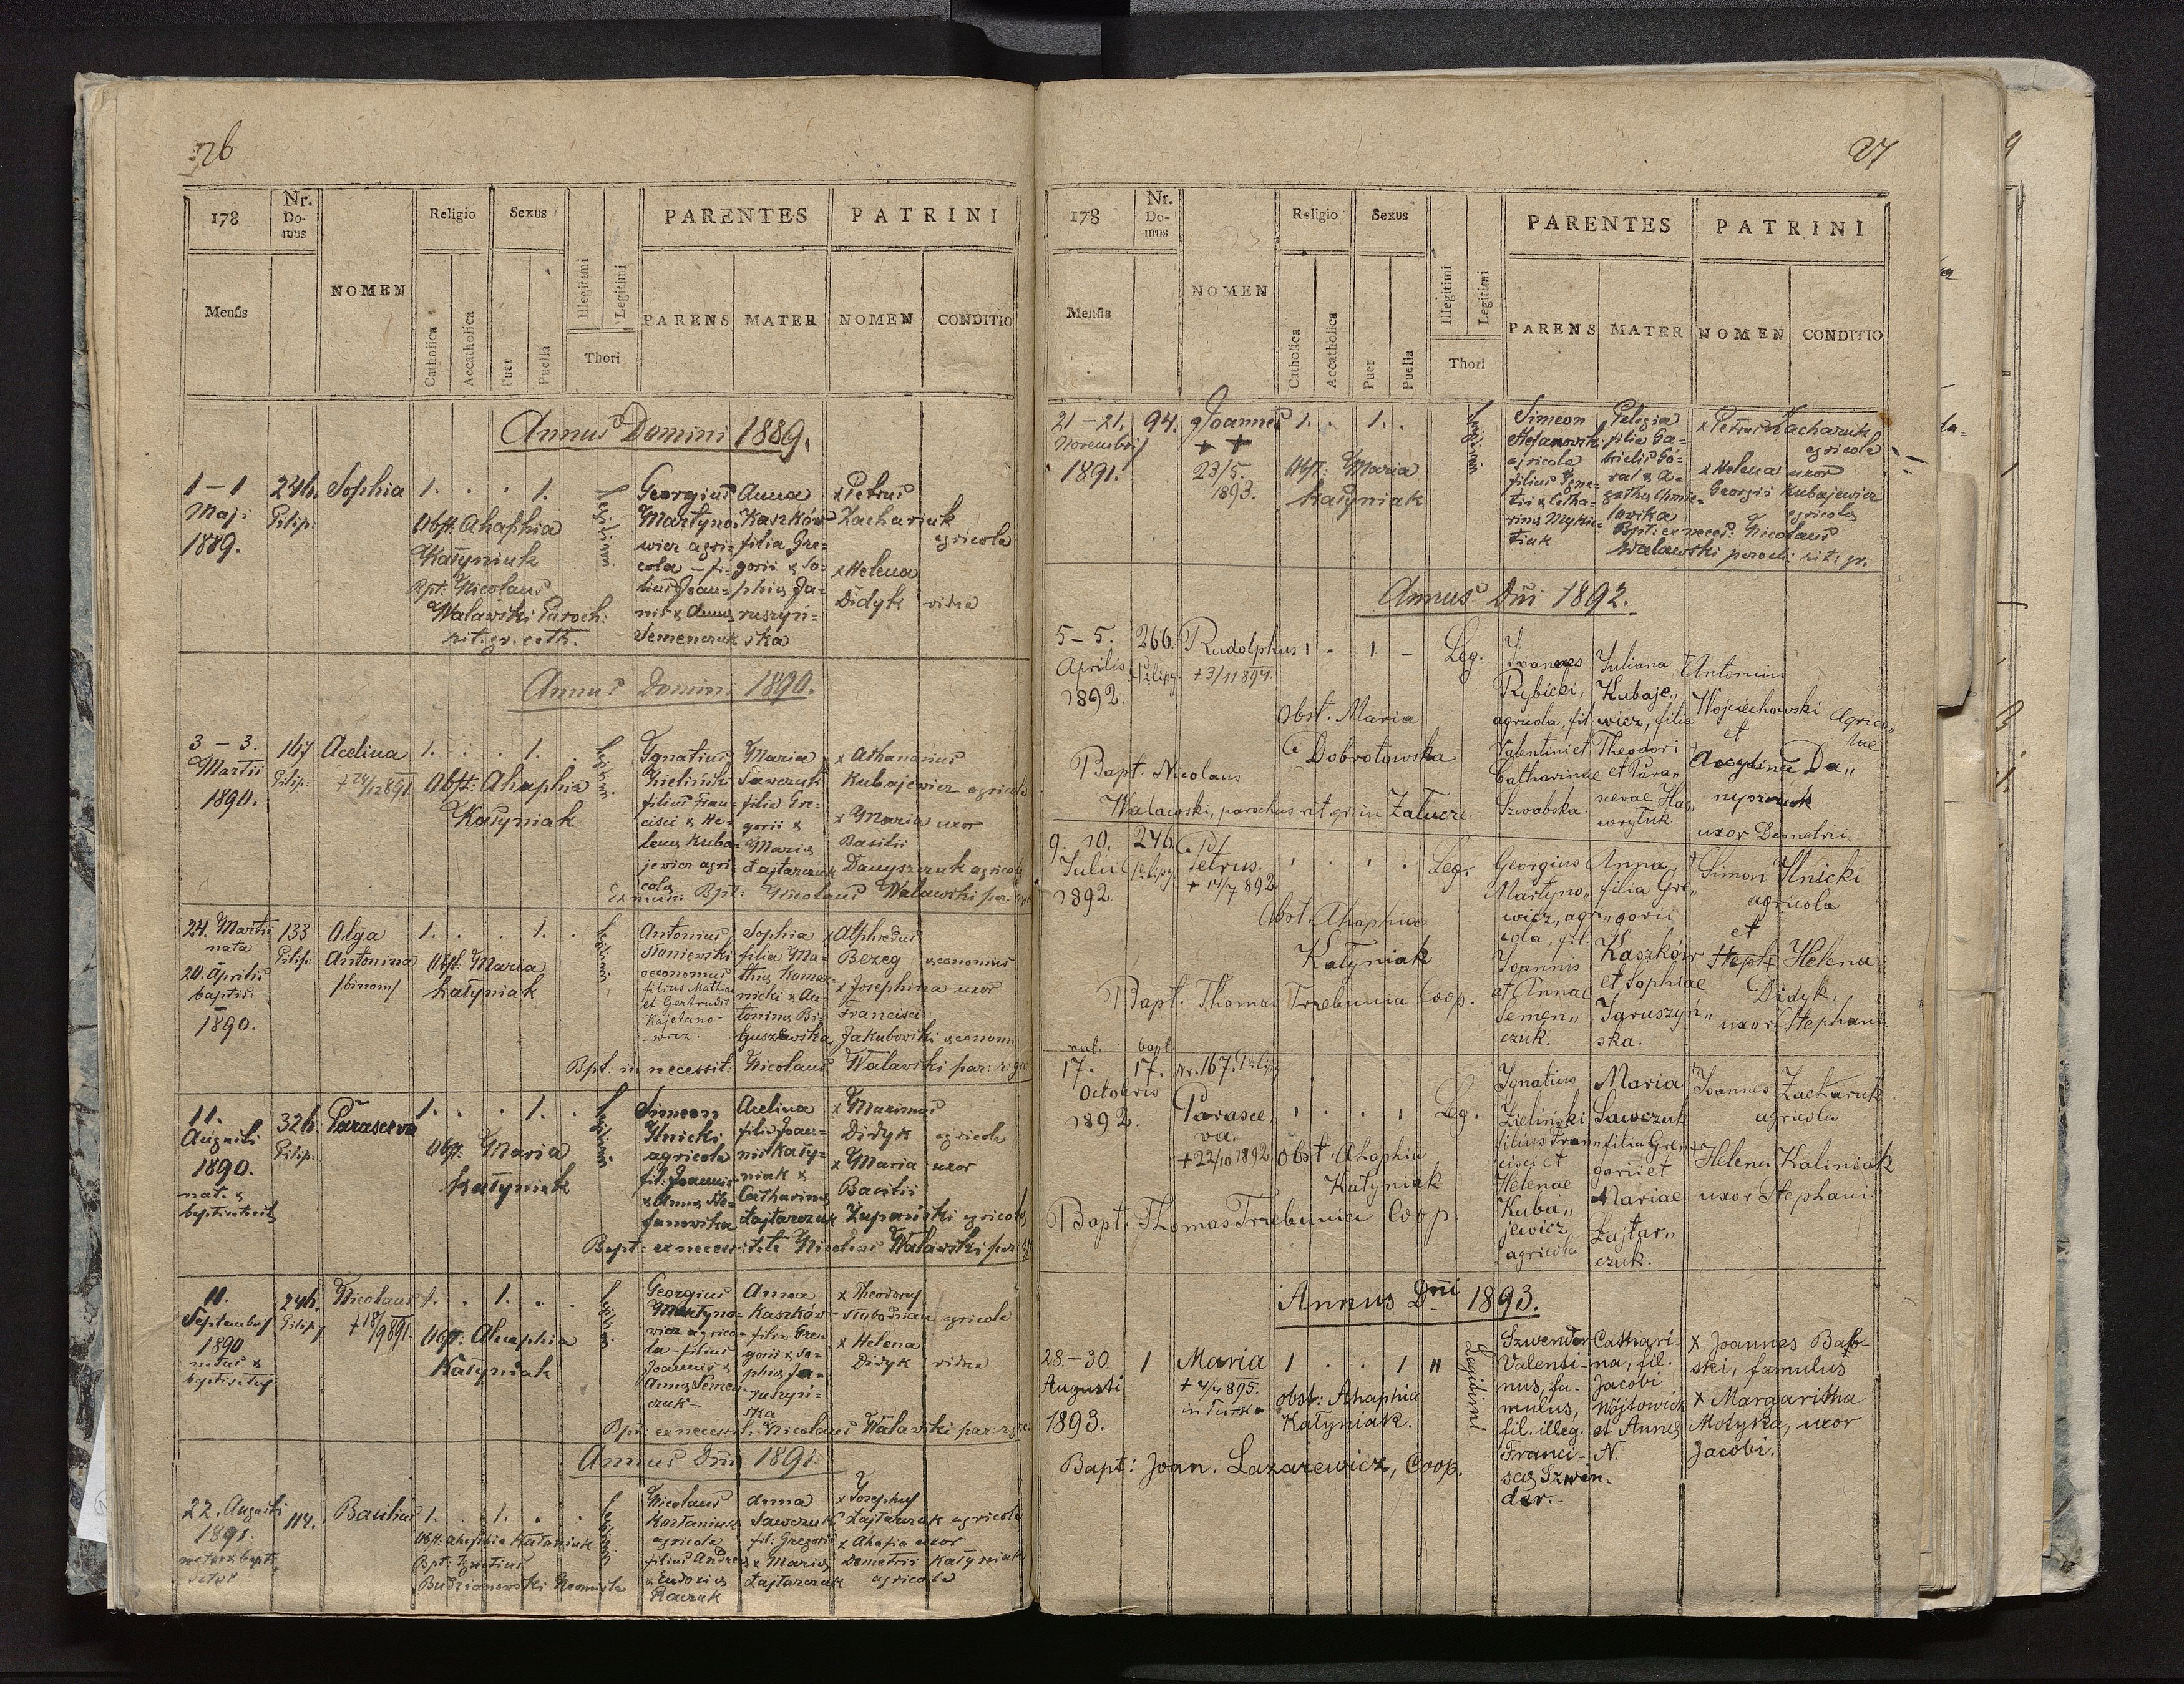 26
178
Nr. Domus
NOMEN
Religio
Sexus
PARENTES
PATRINI
Mensis
Catholica
Accatholica
Puer
Puella
Illegitimi
Legitimi
Thori
PARENS
MATER
NOMEN
CONDITIO
Annus Domini 1889.
1-1 Maji 1889.
246. Pilip:
Sophia
1. . . 1.
Obst. Ahaphia
Kałyniuk
Bpt: Nicolaus
Walawski Paroch:
rit. gr. cath.
Legitimi
Georgius
Martyno-
wicz agri-
cola - fi-
lius Joan-
nis & Annæ
Semenczuk
Anna
Kaszków
filia Gre-
gorii & So-
phiæ Ja-
ruszyń-
ska
x Petrus
Zachariuk
agricola
x Helena
Didyk vidua
Annus Domini 1890.
3-3. Martii 1890.
147 Pilip:
Acelina
+ 24/12 891
1. . . 1. .
Obst: Ahaphia
Kałyniak
Legitimi
Ignatius
Zieliński
filius Fran-
cisci & He-
lenæ Kuba-
jewicz agri-
cola
Maria
Sawczuk
filia Gre-
gorii &
Mariæ
Łajtarczuk
x Athanasius
Kubajewicz agricola
x Maria uxor
Basilii
Danyszczuk agricolæ
Bpt: Nicolaus Walawski par.
24. Martii
nata
20. Aprilis
baptis:
1890.
133 Pilip:
Olga
Antonina
/binom/
1. . . 1. .
Obst: Maria
Kałyniak
Legitimi
Antonius
Staniewski
oeconomus
filius Mathiæ
et Gertrudis
Kajetano-
wicz
Sophia
filia Ma-
thiæ Komar-
nicki & An-
toninæ Bi-
łuszewska
x Alphredus
Bezeg oeconomus
x Josephina uxor
Francisci
Jakubowski oeconomi
Bpt: in necessit: Nicolaus Walawski par: r: gr
11.
Augusti
1890.
nat. &
baptisata
326. Pilip:
Parasceva
1. . . 1. .
Obst: Maria
Kałyniak
Legitimi
Simeon
Ilnicki
agricola
fil. Joannis
& Annæ Ste-
fanowska
Acelina
filia Joan-
nis Kały-
niak &
Catharinæ
Łajtarczuk
x Maximus
Didyk agricola
x Maria uxor
Basilii
Zupański agricolæ
Bapt: ex necessitate Nicolaus Walawski par:
11.
Septembris
1890
natus &
baptisatus
246. Pilipy
Nicolaus
+ 18/9 891.
1. . 1. . .
Obst: Ahaphia
Kałyniak
Legitimi
Georgius
Martyno-
wicz agrico-
la - filius
Joannis &
Annæ Semen-
czuk -
Anna
Kaszków -
filia Gre-
gorii & So-
phiæ Ja-
ruszyń-
ska
x Theodorus
Słobodzian agricola
x Helena
Didyk vidua
Bpt: ex necessit: Nicolaus Walawski par: r. gr.
Annus Dni 1891.
22. Augusti
1891.
natus & bapti-
satus
114.
Basilius
1. . 1. . .
Obst: Ahaphia Kałyniuk
Bpt: Ignatius
Budzianowski Neomysta
Legitimi
Nicolaus
Kostaniuk
agricola
filius Andreæ
& Eudoxiæ
Raczuk
Anna
Sawczuk
fil: Gregorii
& Mariæ
Łajtarczuk
x Josephus
Łajtarczuk agricola
x Ahafia uxor
Demetrii Kałyniuk
agricolæ
27
178
Nr. Domus
NOMEN
Religio
Sexus
PARENTES
PATRINI
Mensis
Catholica
Accatholica
Puer
Puella
Illegitimi
Legitimi
Thori
PARENS
MATER
NOMEN
CONDITIO
21-21.
Novembris
1891.
94.
Joannes
+ +
23/5.
1893.
1. . 1. .
Obst: Maria
Kałyniak
Legitimi
Simeon
Stefanowski
agricola
filius Igna-
tii & Catha-
rinæ Mykie-
tiuk
Pelagia
filia Ga-
brielis Gó-
ral & A-
gathæ Chmie-
lowska
x Petrus Zacharuk
agricola
x Helena uxor
Georgii Kubajewicz
agricolæ
Bpt: ex neces: Nicolaus
Walawski paroch: rit: gr.
Annus Dni 1892.
5-5.
Aprilis
1892.
266. Pilipy
Rudolphus
+ 3/11 894.
1 . 1 -
Leg:
Obst. Maria
Dobrotowska
Joannes
Rybicki,
agricola, fil.
Valentini et
Catharinae
Szwabska.
Juliana
Kubaje„
wicz, filia
Theodori
et Para„
scevae Ha„
wryluk
Antonius
Wojciechowski Agrico„
lae
et
Acelina Da„
nyszczuk
uxor Demetrii.
Bapt. Nicolaus
Walawski, parochus rit. gr. in Załucze.
9. 10.
Julii
1892
246. Pilipy
Petrus.
+ 14/7 892
Leg.
Obst. Ahaphia
Kałyniak
Georgius
Martyno„
wicz, agri„
cola, fil.
Joannis
et Annae
Semen„
czuk.
Anna,
filia Gre„
gorii
Kaszków
et Sophiae
Jaruszyń„
ska.
Simon Ilnicki
agricola
et
Helena
Didyk,
uxor Stephani.
Bapt. Thomas Trzebunia Coop.
nat. bapt.
17. 17.
Octobris
1892.
Nr. 167. Pilipy
Parasce„
va.
+ 22/10 1892
Leg.
Obst. Ahaphia
Kałyniak
Ignatius
Zieliński
filius Fran„
cisci et
Helenae
Kuba„
jewicz
agricola
Maria
Sawczuk
filia Gre„
gorii et
Mariae
Łajtar„
czuk.
Joannes Zacharuk
agricola
Helena Kaliniak
uxor Stephani
Bapt. Thomas Trzebunia Coop.
Annus Dni 1893.
28.-30.
Augusti
1893.
1
Maria
+ 4/4 895.
in Turka
1 . . 1 "
obst: Ahaphia
Kałyniak.
Legitimi
Szwender
Valenti-
nus, fa-
mulus,
fil. illeg.
Franci-
scæ Szwen-
der.-
Cathari-
na, fil.
Jacobi
Wójtowicz
et Annæ
N.
x Joannes Bab-
ski, famulus
x Margaritha
Motyka, uxor
Jacobi.
Bapt: Joan. Łazarewicz, Coop.